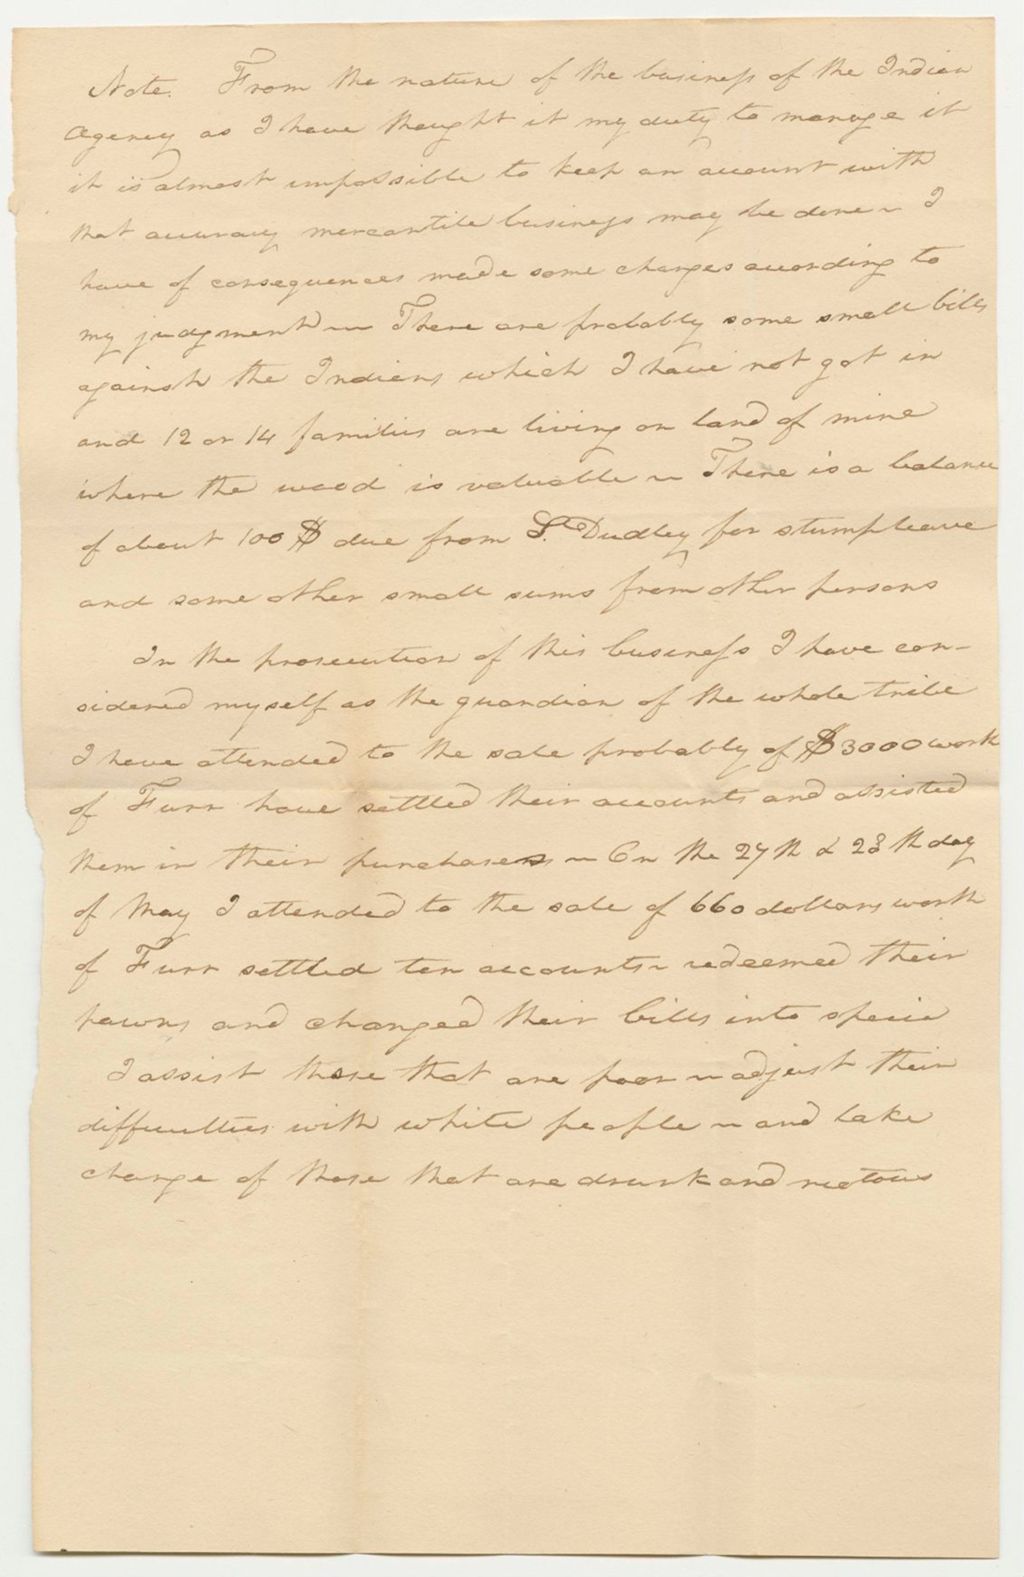 Note. From the nature of the business of the Indian
Agency as I have thought it my duty to manage it
it is almost impossible to keep an account with
that accuracy mercantile business may be done ~ I
have of consequences made some charges according to
my judgment ~ There are probably some small bills
against the Indians which I have not got in
and 12 or 14 families are living on land of mine
where the wood is valuable ~ There is a balance
of about 100 $ due from S. Dudley for stumpleave
and some other small sums from other persons
In the prosecution of this business I have con-
sidered myself as the guardian of the whole tribe
I have attended to the sale probably of $3000 worth
of Furr have settled their accounts and assisted
them in their purchases ~ On the 27th & 28th day
of May I attended to the sale of 660 dollars worth
of Furr settled ten accounts ~ redeemed their
pawns and changed their bills into specie
I assist those that are poor ~ adjust their
difficulties with white people ~ and take
charge of those that are drunk and riotous